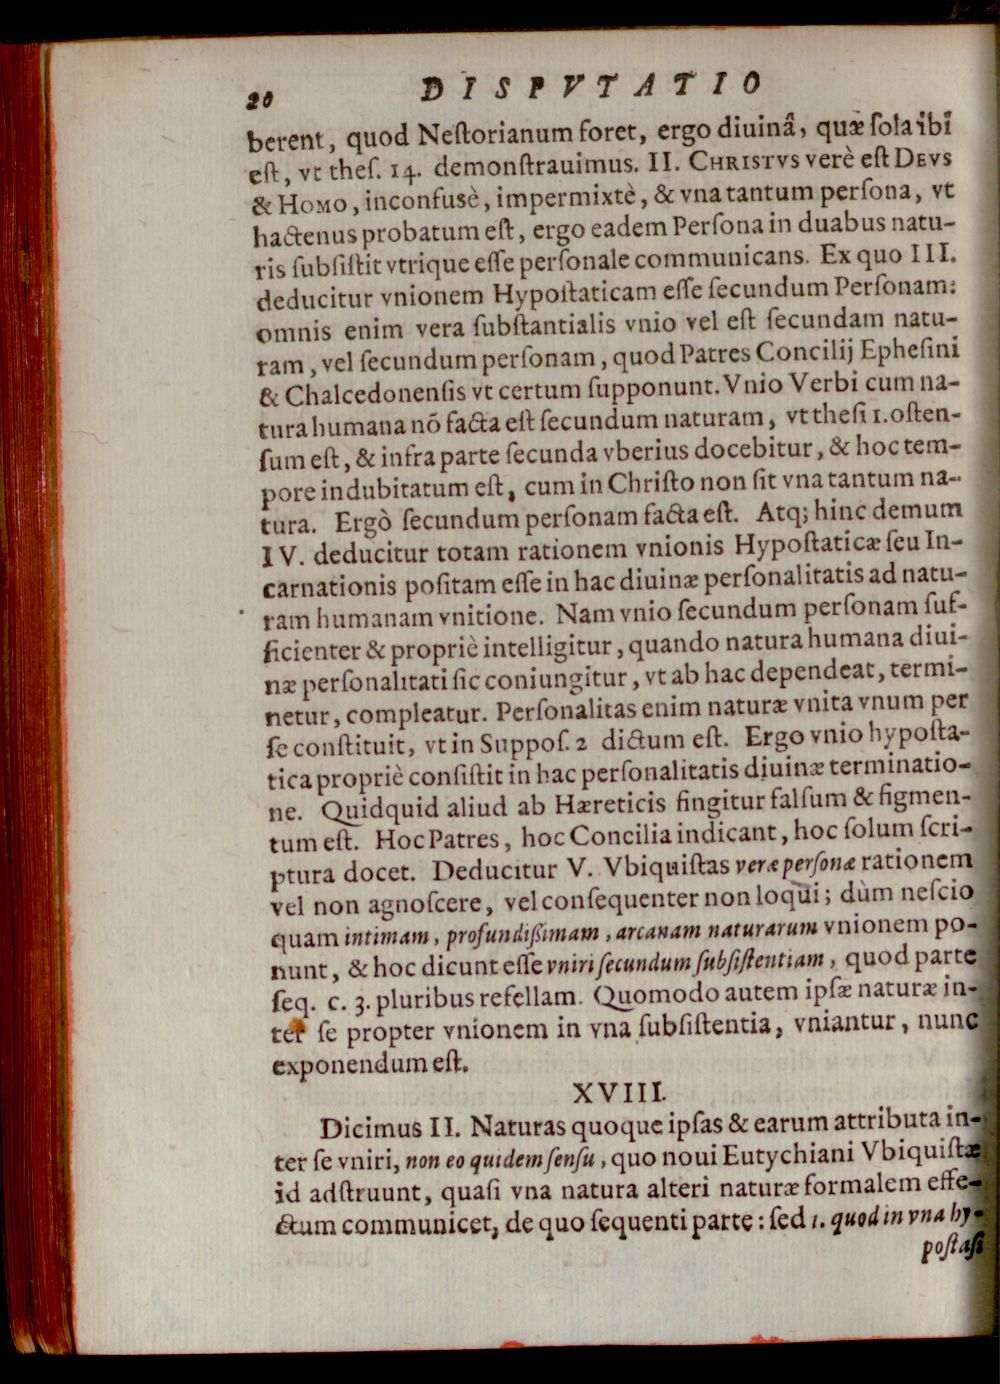 20 DISPVTATIO
berent, quod Neſtorianum foret, ergo diuinâ, quæ ſola ibi
eſt, vt theſ. 14. demonſtrauimus. II. CHRISTVS verè eſt DEVS
& HOMO, inconfusè, impermixtè, & vna tantum perſona, vt
hactenus probatum eſt, ergo eadem Perſona in duabus natu-
ris ſubſiſtit vtrique eſſe perſonale communicans. Ex quo III.
deducitur vnionem Hypoſtaticam eſſe ſecundum Perſonam:
omnis enim vera ſubſtantialis vnio vel eſt ſecundam natu-
ram, vel ſecundum perſonam, quod Patres Concilij Epheſini
& Chalcedonenſis vt certum ſupponunt. Vnio Verbi cum na-
tura humana nõ facta eſt ſecundum naturam, vt theſi 1. oſten-
ſum eſt, & infra parte ſecunda vberius docebitur, & hoc tem-
pore indubitatum eſt, cum in Chriſto non ſit vna tantum na-
tura. Ergò ſecundum perſonam facta eſt. Atq; hinc demum
IV. deducitur totam rationem vnionis Hypoſtaticæ ſeu In-
carnationis poſitam eſſe in hac diuinæ perſonalitatis ad natu-
ram humanam vnitione. Nam vnio ſecundum perſonam ſuf-
ficienter & propriè intelligitur, quando natura humana diui-
næ perſonalitati ſic coniungitur, vt ab hac dependeat, termi-
netur, compleatur. Perſonalitas enim naturæ vnita vnum per
ſe conſtituit, vt in Suppoſ. 2 dictum eſt. Ergo vnio hypoſta-
tica propriè conſiſtit in hac perſonalitatis diuinæ terminatio-
ne. Quidquid aliud ab Hæreticis fingitur falſum & figmen-
tum eſt. Hoc Patres, hoc Concilia indicant, hoc ſolum ſcri-
ptura docet. Deducitur V. Vbiquiſtas veræ perſonæ rationem
vel non agnoſcere, vel conſequenter non loqui; dùm neſcio
quam intimam, profundißimam, arcanam naturarum vnionem po-
nunt, & hoc dicunt eſſe vniri ſecundum ſubſiſtentiam, quod parte
ſeq. c. 3. pluribus refellam. Quomodo autem ipſæ naturæ in-
ter ſe propter vnionem in vna ſubſiſtentia, vniantur, nunc
exponendum eſt.
XVIII.
Dicimus II. Naturas quoque ipſas & earum attributa in-
ter ſe vniri, non eo quidem ſenſu, quo noui Eutychiani Vbiquiſtæ
id adſtruunt, quaſi vna natura alteri naturæ formalem effe-
ctum communicet, de quo ſequenti parte: ſed 1. quod in vna hy-
poſtaſi